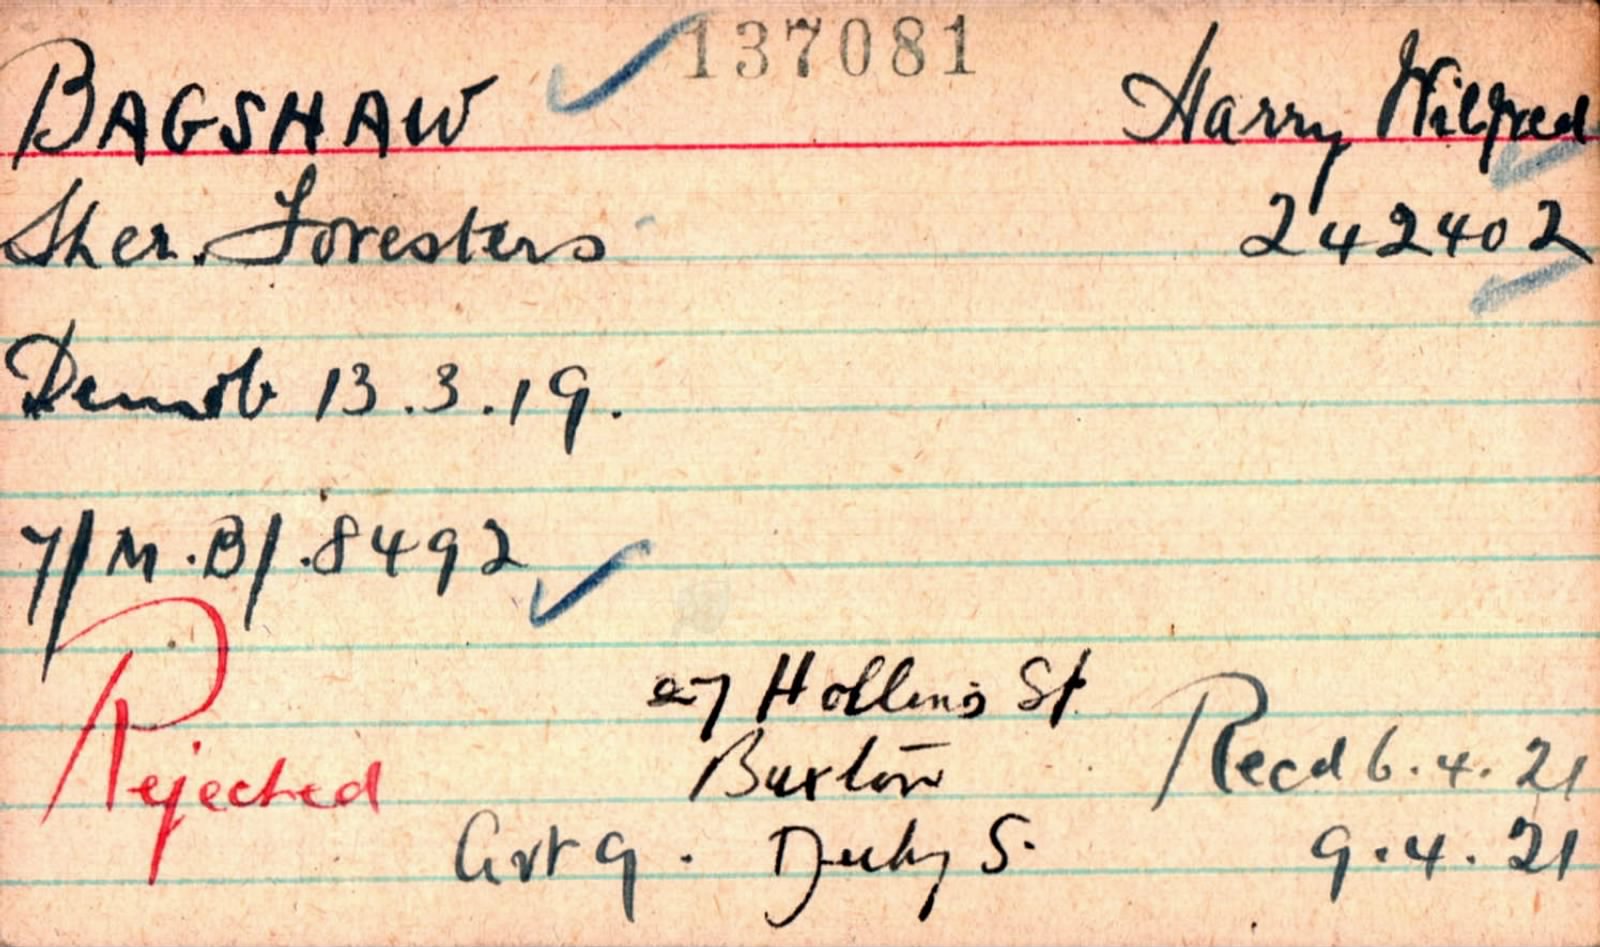 137081
BAGSHAW Harry Wilfred
Sher. Foresters 242402
Demob 13.3.19.
7/M.B/.8492
27 Hollins St
Rejected Buxton Recd 6.4.21
Art 9. Derby S. 9.4.21